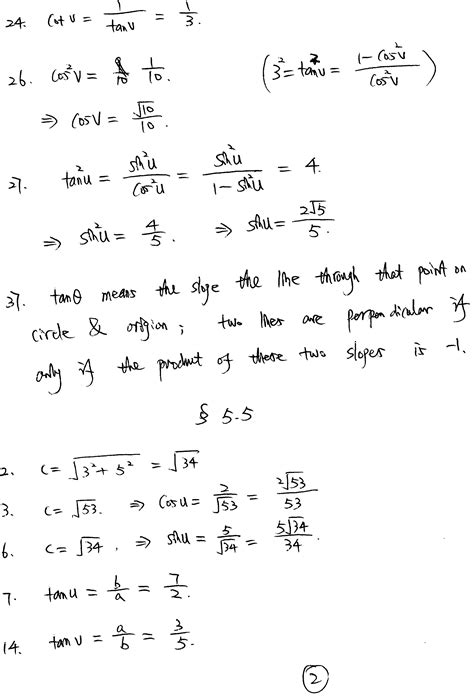 24. cot v = 1/tan v = 1/3.
26. cos²v = 1/10. (3² = tan²v = (1 - cos²v)/cos²v)
⇒ cos v = √10/10.
27. tan²u = sin²u/cos²u = sin²u/(1 - sin²u) = 4.
⇒ sin²u = 4/5. ⇒ sin u = 2√5/5.
37. tanθ means the slope the line through that point on
circle & origian; two lines are perpendicular if
only if the product of these two slopes is -1.
§ 5.5
2. c = √(3² + 5²) = √34
3. c = √53. ⇒ cos u = 2/√53 = 2√53/53
6. c = √34. ⇒ sin u = 5/√34 = 5√34/34.
7. tan u = b/a = 7/2.
14. tan v = a/b = 3/5.
2